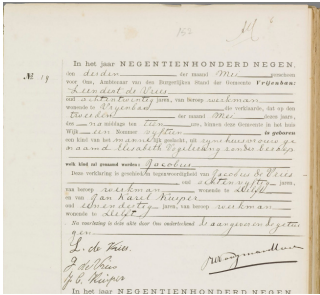 152
In het jaar NEGENTIENHONDERD NEGEN,
№ 19
den derden der maand Mei verscheen
voor Ons, Ambtenaar van den Burgerlijken Stand der Gemeente Vrijenban:
Leendert de Vries
oud achtentwintig jaren, van beroep werkman
wonende te Vrijenban die verklaarde, dat op den
tweeden der maand Mei dezes jaars,
des middags ten een ure, binnen deze Gemeente in het huis
Wijk een Nommer vijftien is geboren
een kind van het mannelijk geslacht, uit zijne huisvrouw ge
naamd Elisabeth Vogelezang zonder beroep
welk kind zal genaamd worden: Jacobus
Deze verklaring is geschied in tegenwoordigheid van Jacobus de Vries
oud achtenvijftig jaren,
van beroep werkman wonende te Delft
en van Jan Karel Kuiper
oud eenendertig jaren, van beroep werkman
wonende te Delft
Na voorlezing is deze akte door Ons onderteekend de aangever en de getui
gen
L. de Vries
J. de Vries
J. C. Kuiper
In het jaar NEGENTIENHONDERD NEGEN